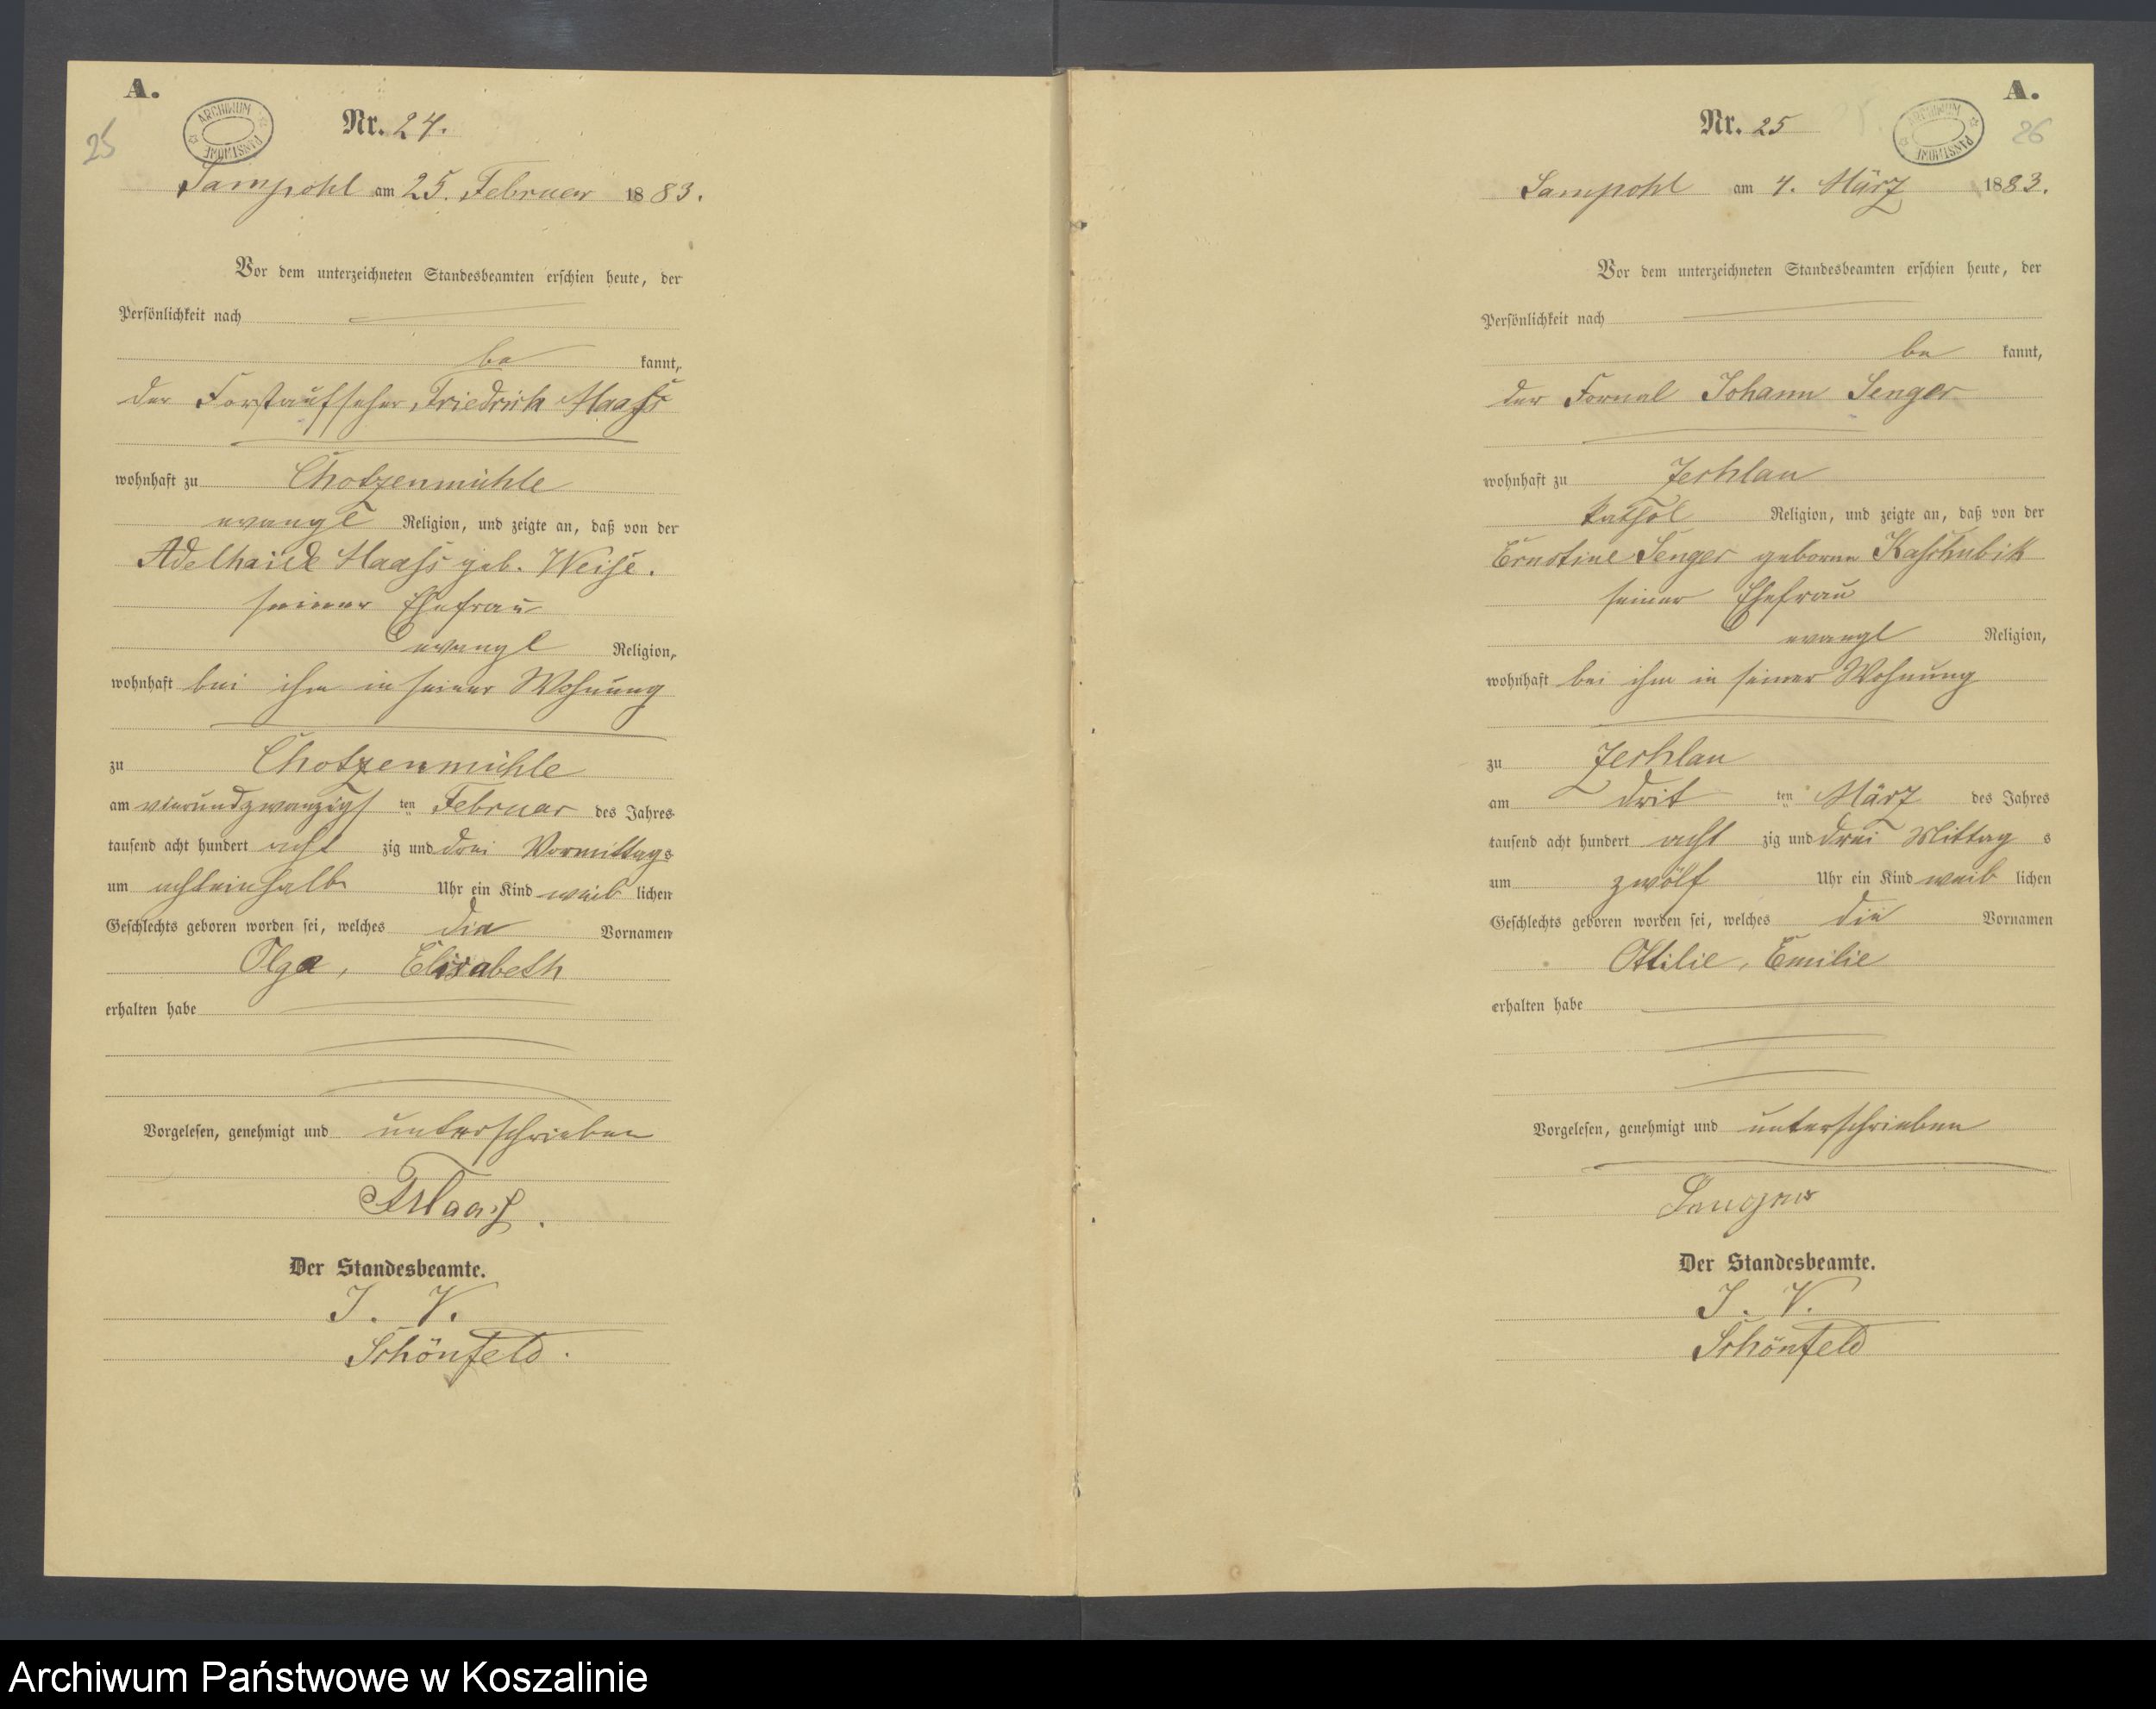 A.
25
ARCHIWUM PAŃSTWOWE
Nr. 24.
Sampohl am 25. Februar 1883.
Vor dem unterzeichneten Standesbeamten erschien heute, der
Persönlichkeit nach
be kannt,
der Forstaufseher Friedrich Maaß
wohnhaft zu Chotzenmühle
evangl Religion, und zeigte an, daß von der
Adelhaide Maaß geb. Weise.
seiner Ehefrau
evangl Religion,
wohnhaft bei ihm in seiner Wohnung
zu Chotzenmühle
am vierundzwanzigs ten Februar des Jahres
tausend acht hundert acht zig und drei Vormittags
um achteinhalb Uhr ein Kind weib lichen
Geschlechts geboren worden sei, welches die Vornamen
Olga, Elisabeth
erhalten habe
Vorgelesen, genehmigt und unterschrieben
FMaaß.
Der Standesbeamte.
I. V.
Schönfeld.
A.
26
ARCHIWUM PAŃSTWOWE
Nr. 25
Sampohl am 4. März 1883.
Vor dem unterzeichneten Standesbeamten erschien heute, der
Persönlichkeit nach
be kannt,
der Fornal Johann Senger
wohnhaft zu Zechlau
kathol Religion, und zeigte an, daß von der
Ernstine Senger geborne Kaschubik
seiner Ehefrau
evangl Religion,
wohnhaft bei ihm in seiner Wohnung
zu Zechlau
am drit ten März des Jahres
tausend acht hundert acht zig und drei Mittag s
um zwölf Uhr ein Kind weib lichen
Geschlechts geboren worden sei, welches die Vornamen
Ottilie, Emilie
erhalten habe
Vorgelesen, genehmigt und unterschrieben
Senger
Der Standesbeamte.
I. V.
Schönfeld
Archiwum Państwowe w Koszalinie